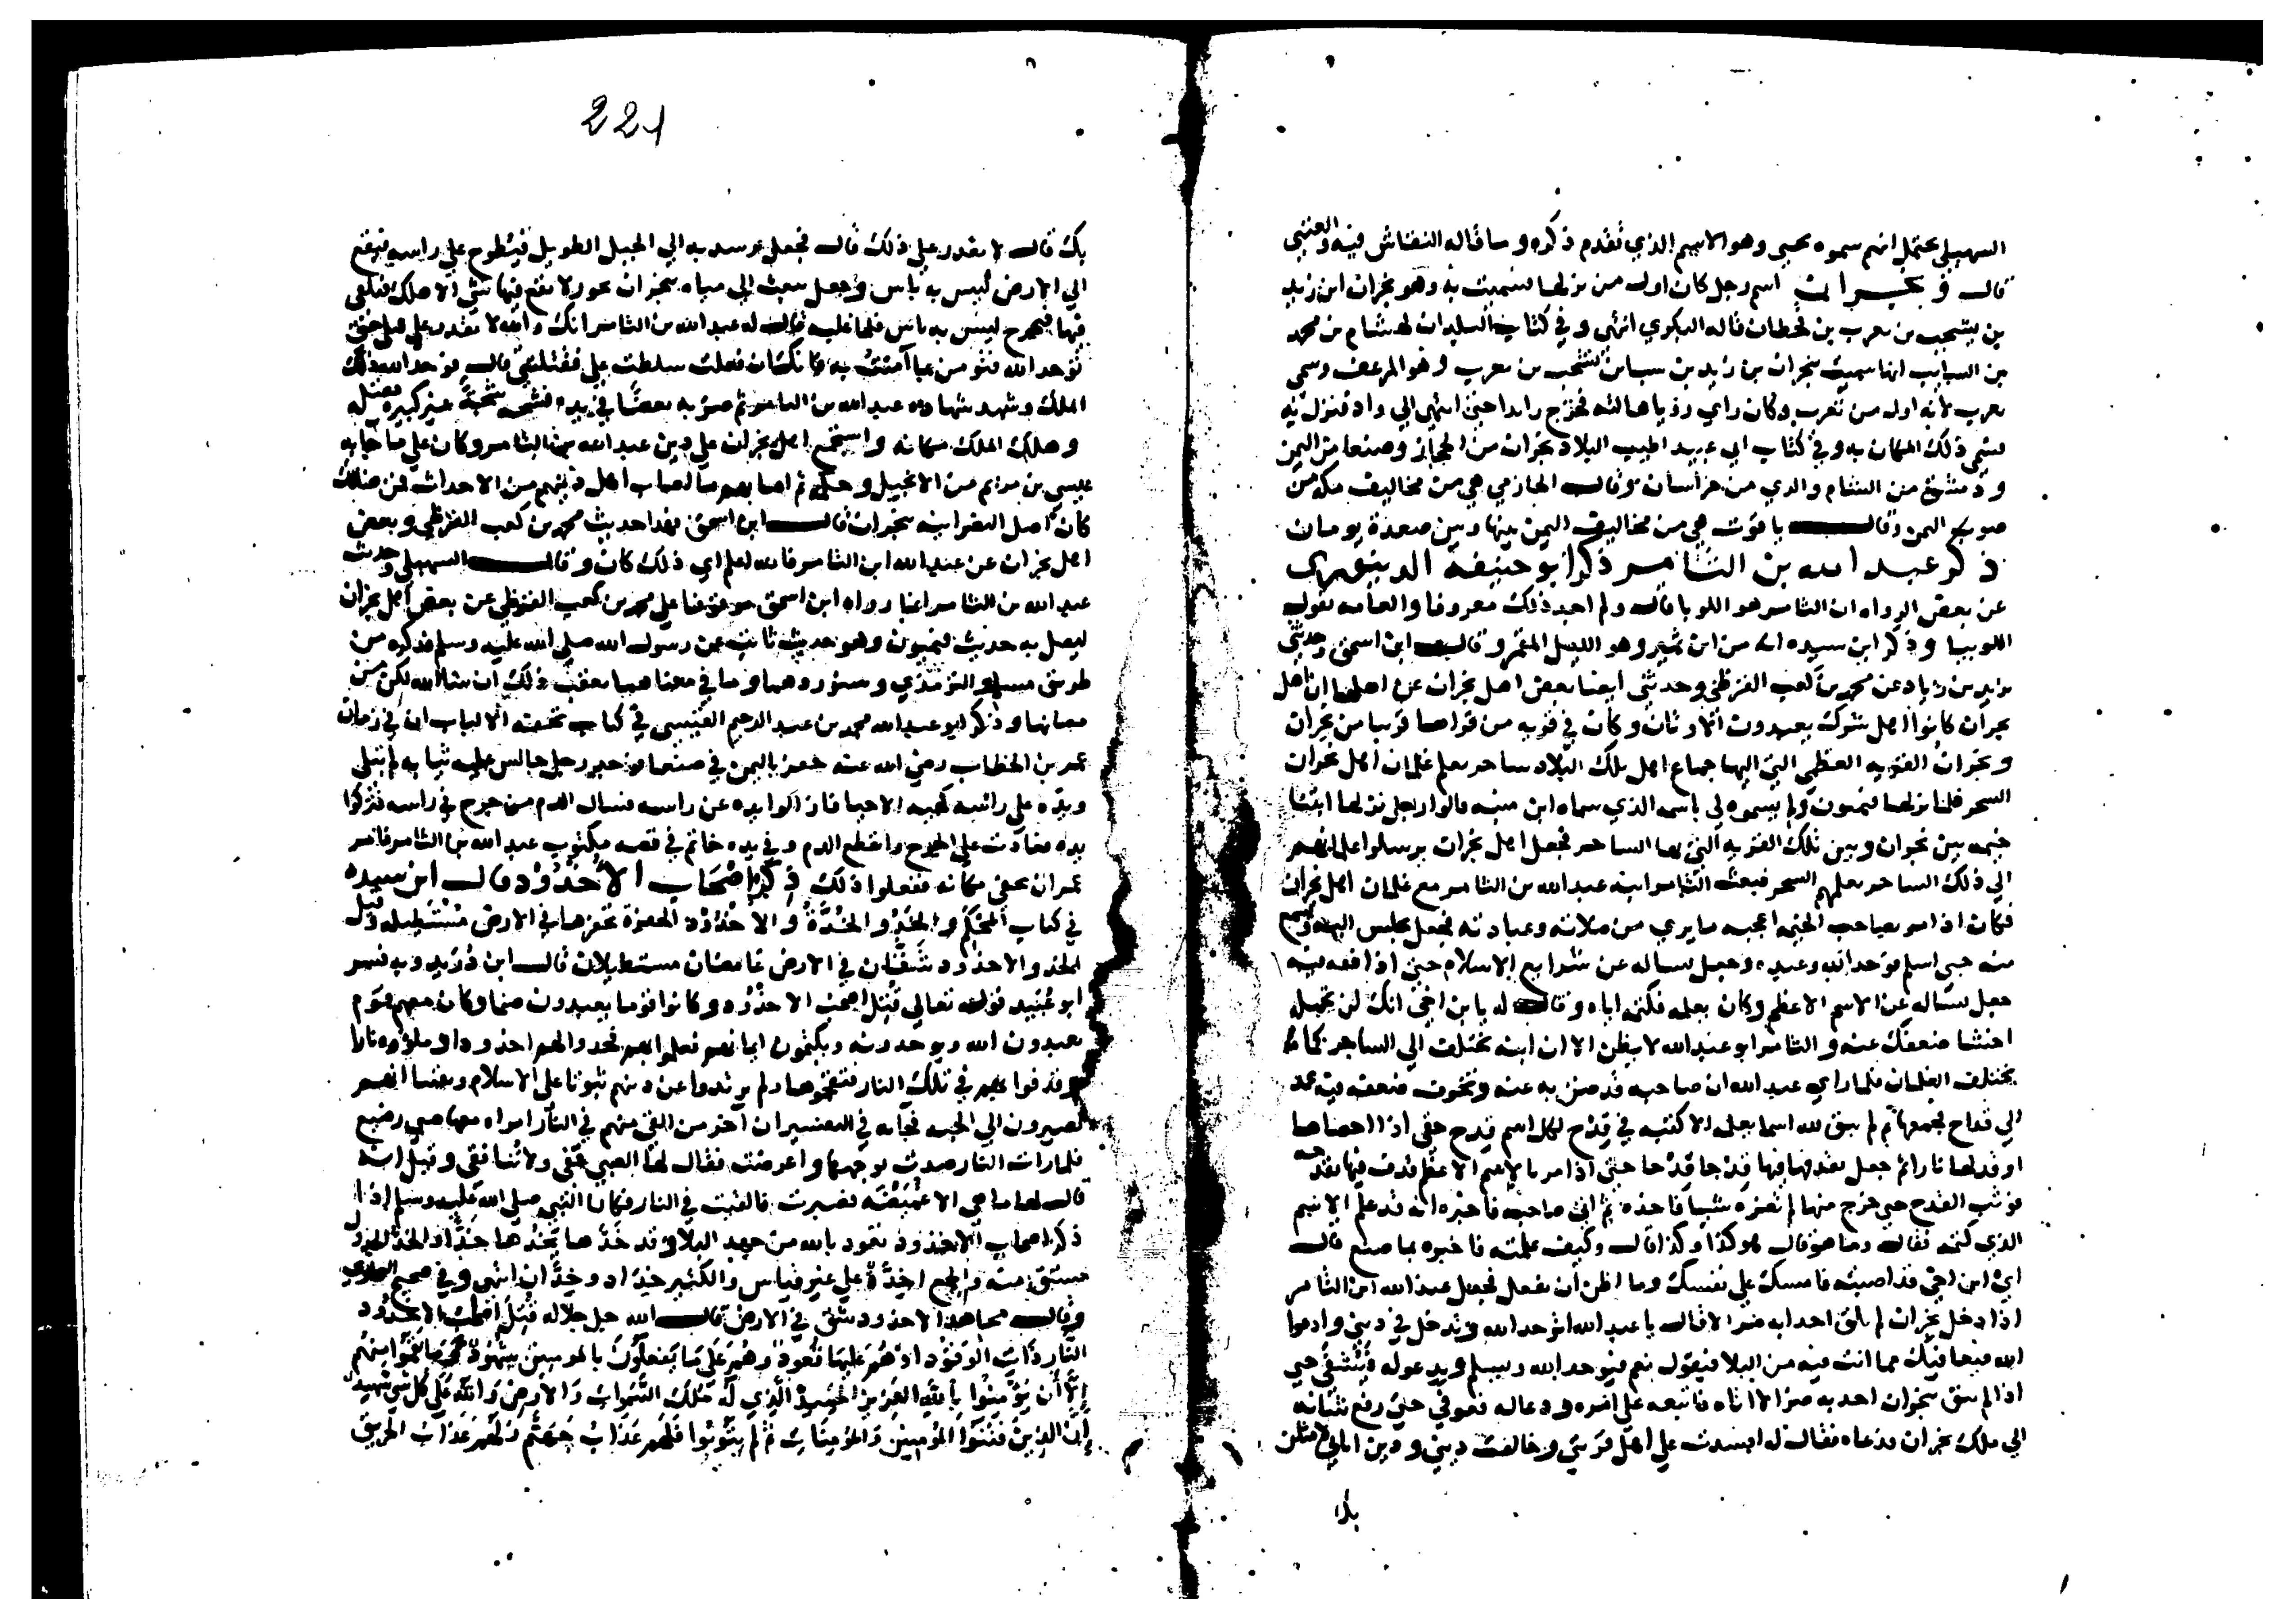 السهيلي يحتمل انهم سموه يحيى وهو الاسم الذي تقدم ذكره وما قاله النقاش فيه والعتبي
قال ونجران اسم رجل كان اول من نزلها فسميت به وهو نجران ابن زيد
بن يشجب بن يعرب بن قحطان قاله البكري انتهى وفي كتاب البلدان لهشام بن محمد
بن السايب انما سميت بنجران بن زيد بن سبا بن يشجب بن يعرب وهو المرعف وسمى
يعرب لانه اول من تعرب وكان راي رؤيا هالته فخرج رايدا حتى انتهى الي واد فنزل به
فسمى ذلك المكان به وفي كتاب ابي عبيد اطيب البلاد نجران من الحجاز وصنعا من اليمن
ودمشق من الشام والري من خراسان وقال الحازمي هي من مخاليف مكة من
صوب اليمن وقال ياقوت هي من مخاليف اليمن بينها وبين صعدة يومان
ذكر عبد الله بن الثامر ذكر ابو حنيفة الدينوري
عن بعض الرواه ان الثامر هو اللوبيا قال ولم اجد ذلك معروفا والعامه تقول
اللوبيا وذكر ابن سيده انه من ابن ثمير وهو الليل المقمر وقال ابن اسحق وحدثني
يزيد بن زياد عن محمد بن كعب القرظي وحدثني ايضا بعض اهل نجران عن اهلها ان اهل
نجران كانوا اهل شرك يعبدون الاوثان وكان في قريه من قراها قريبا من نجران
ونجران القريه العظمي التي اليها جماع اهل تلك البلاد ساحر يعلم غلمان اهل نجران
السحر فلما نزلها فيميون ولم يسموه لي باسمه الذي سماه ابن منبه قالوا رجل نزلها ابتنا
خيمه بين نجران وبين تلك القريه التي بها الساحر فجعل اهل نجران يرسلوا غلمانهم
الي ذلك الساحر يعلمهم السحر فبعث الثامر ابنه عبد الله بن الثامر مع غلمان اهل نجران
فكان اذا مر بصاحب الخيمه اعجبه ما يري من صلاته وعبادته فجعل يجلس اليه ويسمع
منه حتى اسلم فوحد الله وعبده وجعل يساله عن شرايع الاسلام حتى اذا فقه فيه
جعل يساله عن الاسم الاعظم وكان يعلمه فكتمه اياه وقال له يا بن اخي انك لن تحمله
اخشا ضعفك عنه والثامر ابو عبد الله لا يظن الا ان ابنه يختلف الي الساحر كما
يختلف الغلمان فلما راي عبد الله ان صاحبه قد ضن به عنه وتخوف ضعفه فيه عمد
الي قداح فجمعها ثم لم يبق لله اسما يعلمه الا كتبه في قدح لكل اسم قدح حتى اذا احصاها
اوقد لها نارا ثم جعل يقذفها فيها قدحا قدحا حتى اذا مر بالاسم الاعظم قذف فيها بقدحه
فوثب القدح حتى خرج منها لم تضره شيا فاخذه ثم اتى صاحبه فاخبره انه قد علم الاسم
الذي كتمه فقال وما هو قال هو كذا وكذا قال وكيف علمته فاخبره بما صنع قال
اي ابن اخي قد اصبته فامسك علي نفسك وما اظن ان تفعل فجعل عبد الله ابن الثامر
اذا دخل نجران لم يلق احدا به ضر الا قال يا عبد الله اتوحد الله وتدخل في ديني وادعوا
الله فيعافيك مما انت فيه من البلا فيقول نعم فيوحد الله ويسلم ويدعو له فيشفى حتى
اذا لم يبق بنجران احد به ضر الا اتاه فاتبعه على امره ودعا له فعوفي حتى رفع شانه
الي ملك نجران فدعاه فقال له افسدت علي اهل قريتي وخالفت ديني ودين ابائي لامثلن
بك قال لا تقدر علي ذلك قال فجعل يرسل به الي الجبل الطويل فيطرح علي راسه فيقع
الي الارض ليس به باس وجعل يبعث الى مياه بنجران بحور لا يقع فيها شي الا هلك فيلقى
فيها فيخرج ليس به باس فلما غلبه قال له عبد الله بن الثامر انك والله لا تقدر على قتلي حتى
توحد الله فتومن بما آمنت به فانك ان فعلت سلطت علي فقتلتني قال فوحد الله ذلك
الملك وشهد شهادة عبد الله بن الثامر ثم ضربه بعصا في يده فشجه شجة غير كبيره فقتله
وهلك الملك مكانه واستجمع اهل نجران علي دين عبد الله بن الثامر وكان علي ما جا به
عيسى بن مريم من الانجيل وحكمه ثم اصابهم ما اصاب اهل دينهم من الاحداث فمن هنالك
كان اصل النصرانيه بنجران قال ابن اسحق فهذا حديث محمد بن كعب القرظي وبعض
اهل نجران عن عبد الله ابن الثامر فالله اعلم اي ذلك كان وقال السهيلي وحديث
عبد الله بن الثامر انما رواه ابن اسحق موقوفا علي محمد بن كعب القرظي عن بعض اهل نجران
ليصل به حديث فيميون وهو حديث ثابت عن رسول الله صلى الله عليه وسلم نذكره من
طريق مسلم والترمذي وسنوردهما وما في معناهما بعقب ذلك ان شا الله لكن من
معانها وذكر ابو عبد الله محمد بن عبد الرحيم القيسي في كتاب تحفه الالباب ان في زمان
عمر بن الخطاب رضي الله عنه حفر باليمن في صنعا رجل جالس عليه ثيابه لم تبلى
ويده على راسه كهيه الاحيا فازالوا يده عن راسه فسال الدم من جرح في راسه فتركوا
يده فعادت على الجرح وانقطع الدم وفي يده خاتم في فصه مكتوب عبد الله بن الثامر فامر
عمر ان يخفى مكانه ففعلوا ذلك ذكر اصحاب الاخدود قال ابن سيده
في كتاب المحكم والخد والخدة والاخدود الحفرة تحفرها في الارض مستطيله وقيل
الخد والاخدود شقان في الارض غامضان مستطيلان قال ابن دريد وبه فسر
ابو عبيد قوله تعالى قتل اصحب الاخدود وكانوا قوما يعبدون صنما وكان معهم قوم
يعبدون الله ويوحدونه ويكتمون ايمانهم فعلموا بهم فخدوا لهم اخدودا وملؤوه نارا
وقذفوا بهم في تلك النار فتقحموها ولم يرتدوا عن دينهم ثبوتا على الاسلام ويقينا انهم
يصيرون الي الجنه فجا في التفسير ان اخر من القي منهم في النار امراه معها صبي رضيع
فلما رات النار صدت بوجهها واعرضت فقال لها الصبي قفي ولا تنافقي وقيل انه
قال لها ما هي الا غميضة فصبرت فالقيت في النار فكان النبي صلى الله عليه وسلم اذا
ذكر اصحاب الاخدود تعوذ بالله من جهد البلا وقد خدها يخدها خدا والخد الجدول
مشتق منه والجمع اخدة على غير قياس والكثير خداد وخدان انتهى وفي صحيح البخاري
وقال مجاهد الاخدود شق في الارض قال الله جل جلاله قتل اصحاب الاخدود
النار ذات الوقود اذ هم عليها قعود وهم على ما يفعلون بالمومنين شهود وما نقموا منهم
الا ان يؤمنوا بالله العزيز الحميد الذي له ملك السموات والارض والله على كل شي شهيد
ان الذين فتنوا المؤمنين والمؤمنات ثم لم يتوبوا فلهم عذاب جهنم ولهم عذاب الحريق
221